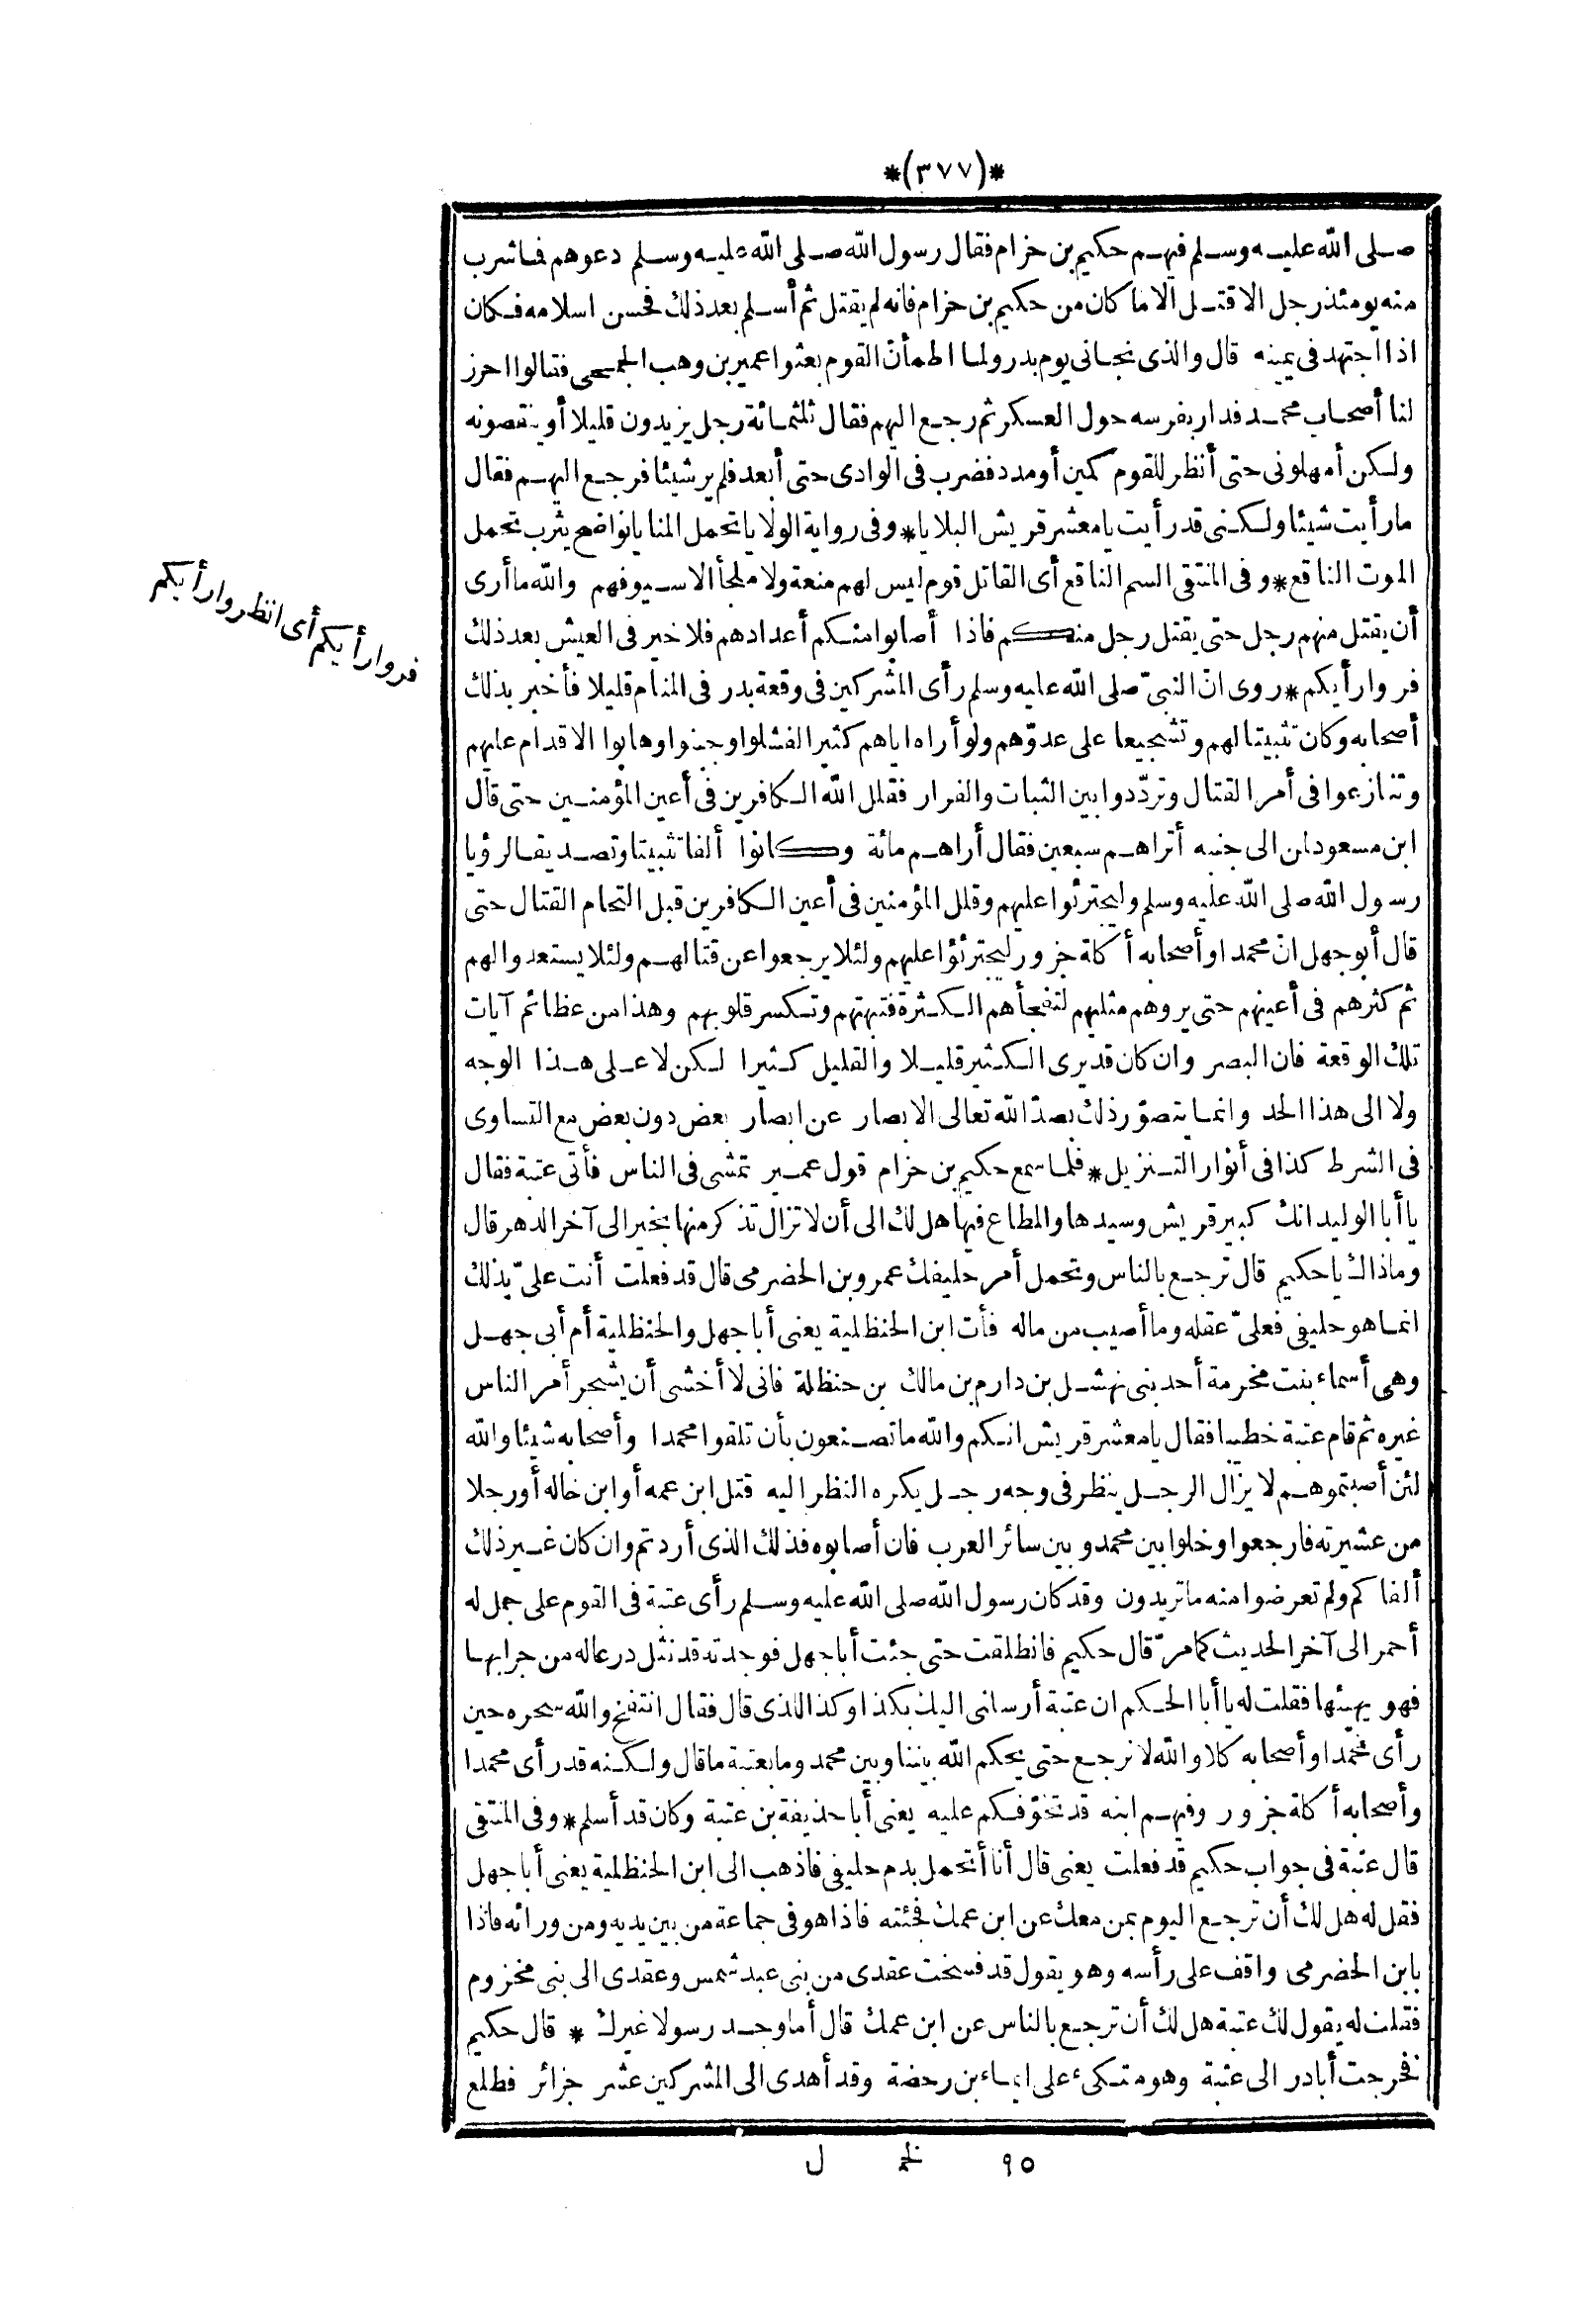 *(٣٧٧)*
صلى الله عليه وسلم فيهم حكيم بن حزام فقال رسول الله صلى الله عليه وسلم دعوهم فاشرب
منه يومئذ رجل الا قتل الا ما كان من حكيم بن حزام فانه لم يقتل ثم أسلم بعد ذلك فحسن اسلامه فكان
اذا اجتهد فى يمينه قال والذى نجانى يوم بدر ولما اطمأن القوم بعثوا عمير بن وهب الجمحى فقالوا احرز
لنا أصحاب محمد فدار بفرسه حول العسكر ثم رجع اليهم فقال ثلثمائة رجل يزيدون قليلا أو ينقصونه
ولكن أمهلونى حتى أنظر للقوم كمين أو مدد فضرب فى الوادى حتى أبعد فلم ير شيئا فرجع اليهم فقال
ما رأيت شيئا ولكنى قد رأيت يا معشر قريش البلايا * وفى رواية الولايا تحمل المنايا نواضح يثرب تحمل
الموت الناقع * وفى المنتقى السم الناقع أى القاتل قوم ليس لهم منعة ولا ملجأ الا سيوفهم والله ما أرى
أن يقتل منهم رجل حتى يقتل رجل منكم فاذا أصابوا منكم أعدادهم فلا خير فى العيش بعد ذلك
فروا رأيكم * روى انّ النبىّ صلى الله عليه وسلم رأى المشركين فى وقعة بدر فى المنام قليلا فأخبر بذلك
فروا رأيكم أى انظروا رأيكم
أصحابه وكان تثبيتا لهم وتشجيعا على عدوّهم ولو أراه اياهم كثيرا لفشلوا وجبنوا وهابوا الاقدام عليهم
وتنازعوا فى أمر القتال وتردّدوا بين الثبات والفرار فقلل الله الكافرين فى أعين المؤمنين حتى قال
ابن مسعود لمن الى جنبه أتراهم سبعين فقال أراهم مائة وكانوا ألفا تثبيتا وتصديقا لرؤيا
رسول الله صلى الله عليه وسلم وليجترئوا عليهم وقلل المؤمنين فى أعين الكافرين قبل التحام القتال حتى
قال أبو جهل انّ محمدا وأصحابه أكلة جزور ليجترئوا عليهم ولئلا يرجعوا عن قتالهم ولئلا يستعدوا لهم
ثم كثرهم فى أعينهم حتى يروهم مثليهم لتفجأهم الكثرة فتبهتهم وتكسر قلوبهم وهذا من عظائم آيات
تلك الوقعة فان البصر وان كان قد يرى الكثير قليلا والقليل كثيرا لكن لا على هذا الوجه
ولا الى هذا الحد وانما يتصوّر ذلك بصدّ الله تعالى الابصار عن ابصار بعض دون بعض مع التساوى
فى الشرط كذا فى أنوار التنزيل * فلما سمع حكيم بن حزام قول عمير تمشى فى الناس فأتى عتبة فقال
يا أبا الوليد انك كبير قريش وسيدها والمطاع فيها هل لك الى أن لا تزال تذكر منها بخير الى آخر الدهر قال
وما ذاك يا حكيم قال ترجع بالناس وتحمل أمر حليفك عمرو بن الحضرمى قال قد فعلت أنت علىّ بذلك
انما هو حليفى فعلىّ عقله وما أصيب من ماله فأت ابن الحنظلية يعنى أبا جهل والحنظلية أم أبى جهل
وهى أسماء بنت مخرمة أحد بنى نهشل بن دارم بن مالك بن حنظلة فانى لا أخشى أن يشجر أمر الناس
غيره ثم قام عتبة خطيبا فقال يا معشر قريش انكم والله ما تصنعون بأن تلقوا محمدا وأصحابه شيئا والله
لئن أصبتموهم لا يزال الرجل ينظر فى وجه رجل يكره النظر اليه قتل ابن عمه أو ابن خاله أو رجلا
من عشيرته فارجعوا وخلوا بين محمد وبين سائر العرب فان أصابوه فذلك الذى أردتم وان كان غير ذلك
ألفاكم ولم تعرضوا منه ما تريدون وقد كان رسول الله صلى الله عليه وسلم رأى عتبة فى القوم على جمل له
أحمر الى آخر الحديث كما مرّ قال حكيم فانطلقت حتى جئت أبا جهل فوجدته قد نثل درعا له من جرابها
فهو يهيئها فقلت له يا أبا الحكم ان عتبة أرسلنى اليك بكذا وكذا للذى قال فقال انتفخ والله سحره حين
رأى محمدا وأصحابه كلا والله لا نرجع حتى يحكم الله بيننا وبين محمد وما بعتبة ما قال ولكنه قد رأى محمدا
وأصحابه أكلة جزور وفيهم ابنه قد تخوّفكم عليه يعنى أبا حذيفة بن عتبة وكان قد أسلم * وفى المنتقى
قال عتبة فى جواب حكيم قد فعلت يعنى قال أنا أتحمل بدم حليفى فاذهب الى ابن الحنظلية يعنى أبا جهل
فقل له هل لك أن ترجع اليوم بمن معك عن ابن عمك فجئته فاذا هو فى جماعة من بين يديه ومن ورائه فاذا
بابن الحضرمى واقف على رأسه وهو يقول قد فسخت عقدى من بنى عبد شمس وعقدى الى بنى مخزوم
فقلت له يقول لك عتبة هل لك أن ترجع بالناس عن ابن عمك قال أما وجد رسولا غيرك * قال حكيم
فخرجت أبادر الى عتبة وهو متكىء على ايماء بن رحضة وقد أهدى الى المشركين عشر جزائر فطلع
٩٥ خ ل